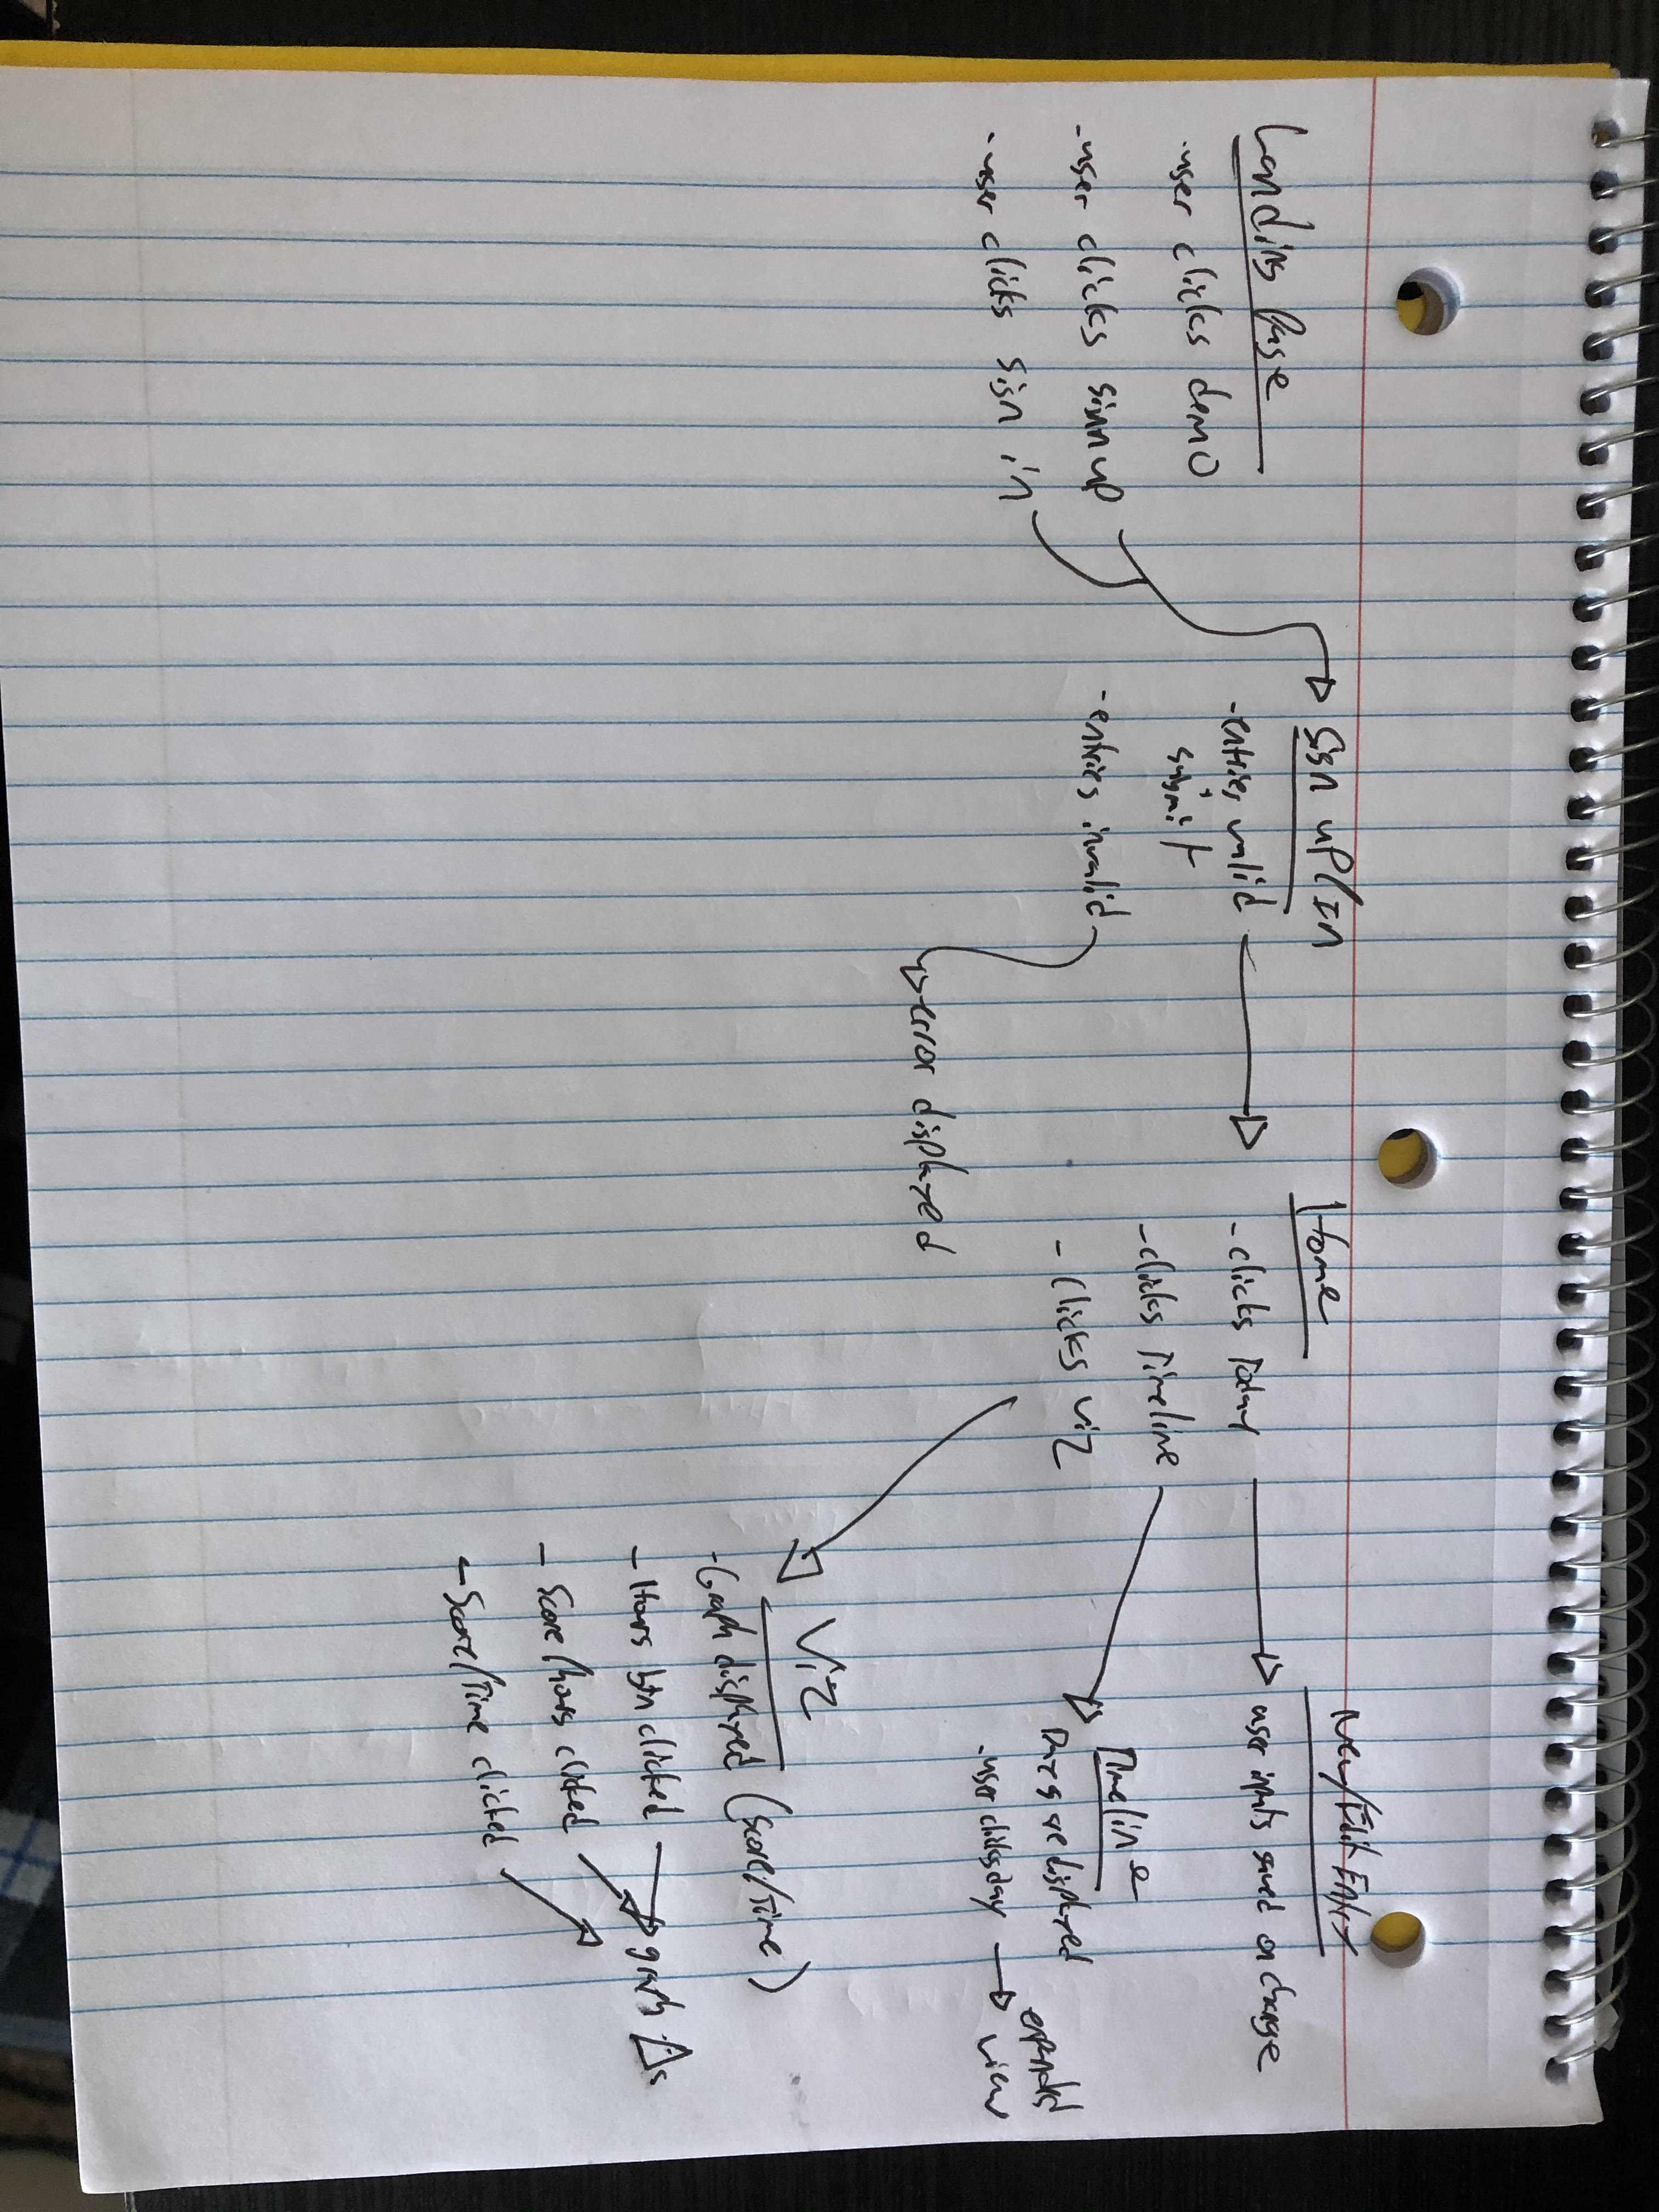 Landing Page
- user clicks demo
- user clicks signup
- user clicks sign in
Sign up/In
- entries valid
submit
- entries invalid
error displayed
Home
- clicks Today
- clicks Timeline
- clicks viz
New/Edit Entry
user inputs saved on change
Timeline
Days are displayed
- user clicks day
expanded
view
Viz
- Graph displayed (score/Time)
- Hours btn clicked
- Score/hours clicked
- Score/Time clicked
graph Δs